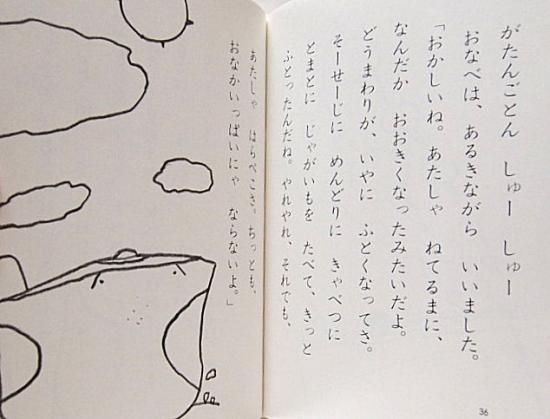 がたんごとん　しゅー　しゅー
おなべは、あるきながら　いいました。
「おかしいね。あたしゃ　ねてるまに、
なんだか　おおきくなったみたいだよ。
どうまわりが、いやに　ふとくなってさ。
そーせーじに　めんどりに　きゃべつに
とまとに　じゃがいもを　たべて、きっと
ふとったんだね。やれやれ、それでも、
あたしゃ　はらぺこさ。ちっとも、
おなかいっぱいにゃ　ならないよ。」
36